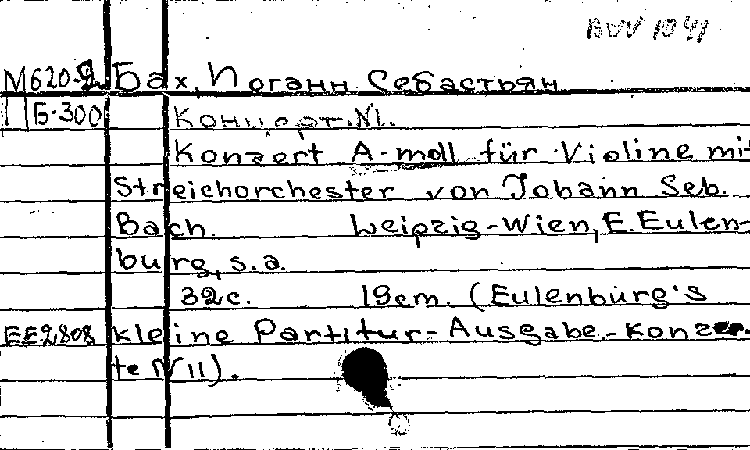 BWV 1041
М620.2 Бах, Иоганн Себастьян
Б-300 Концерт.N1.
Konzert A-moll für Violine mit
Streichorchester von Johann Seb.
Bach. Leipzig-Wien, E. Eulen-
burg, s.a.
32c. 19cm. (Eulenburg's
EE2808 kleine Partitur-Ausgabe.-Konzer-
te N11).